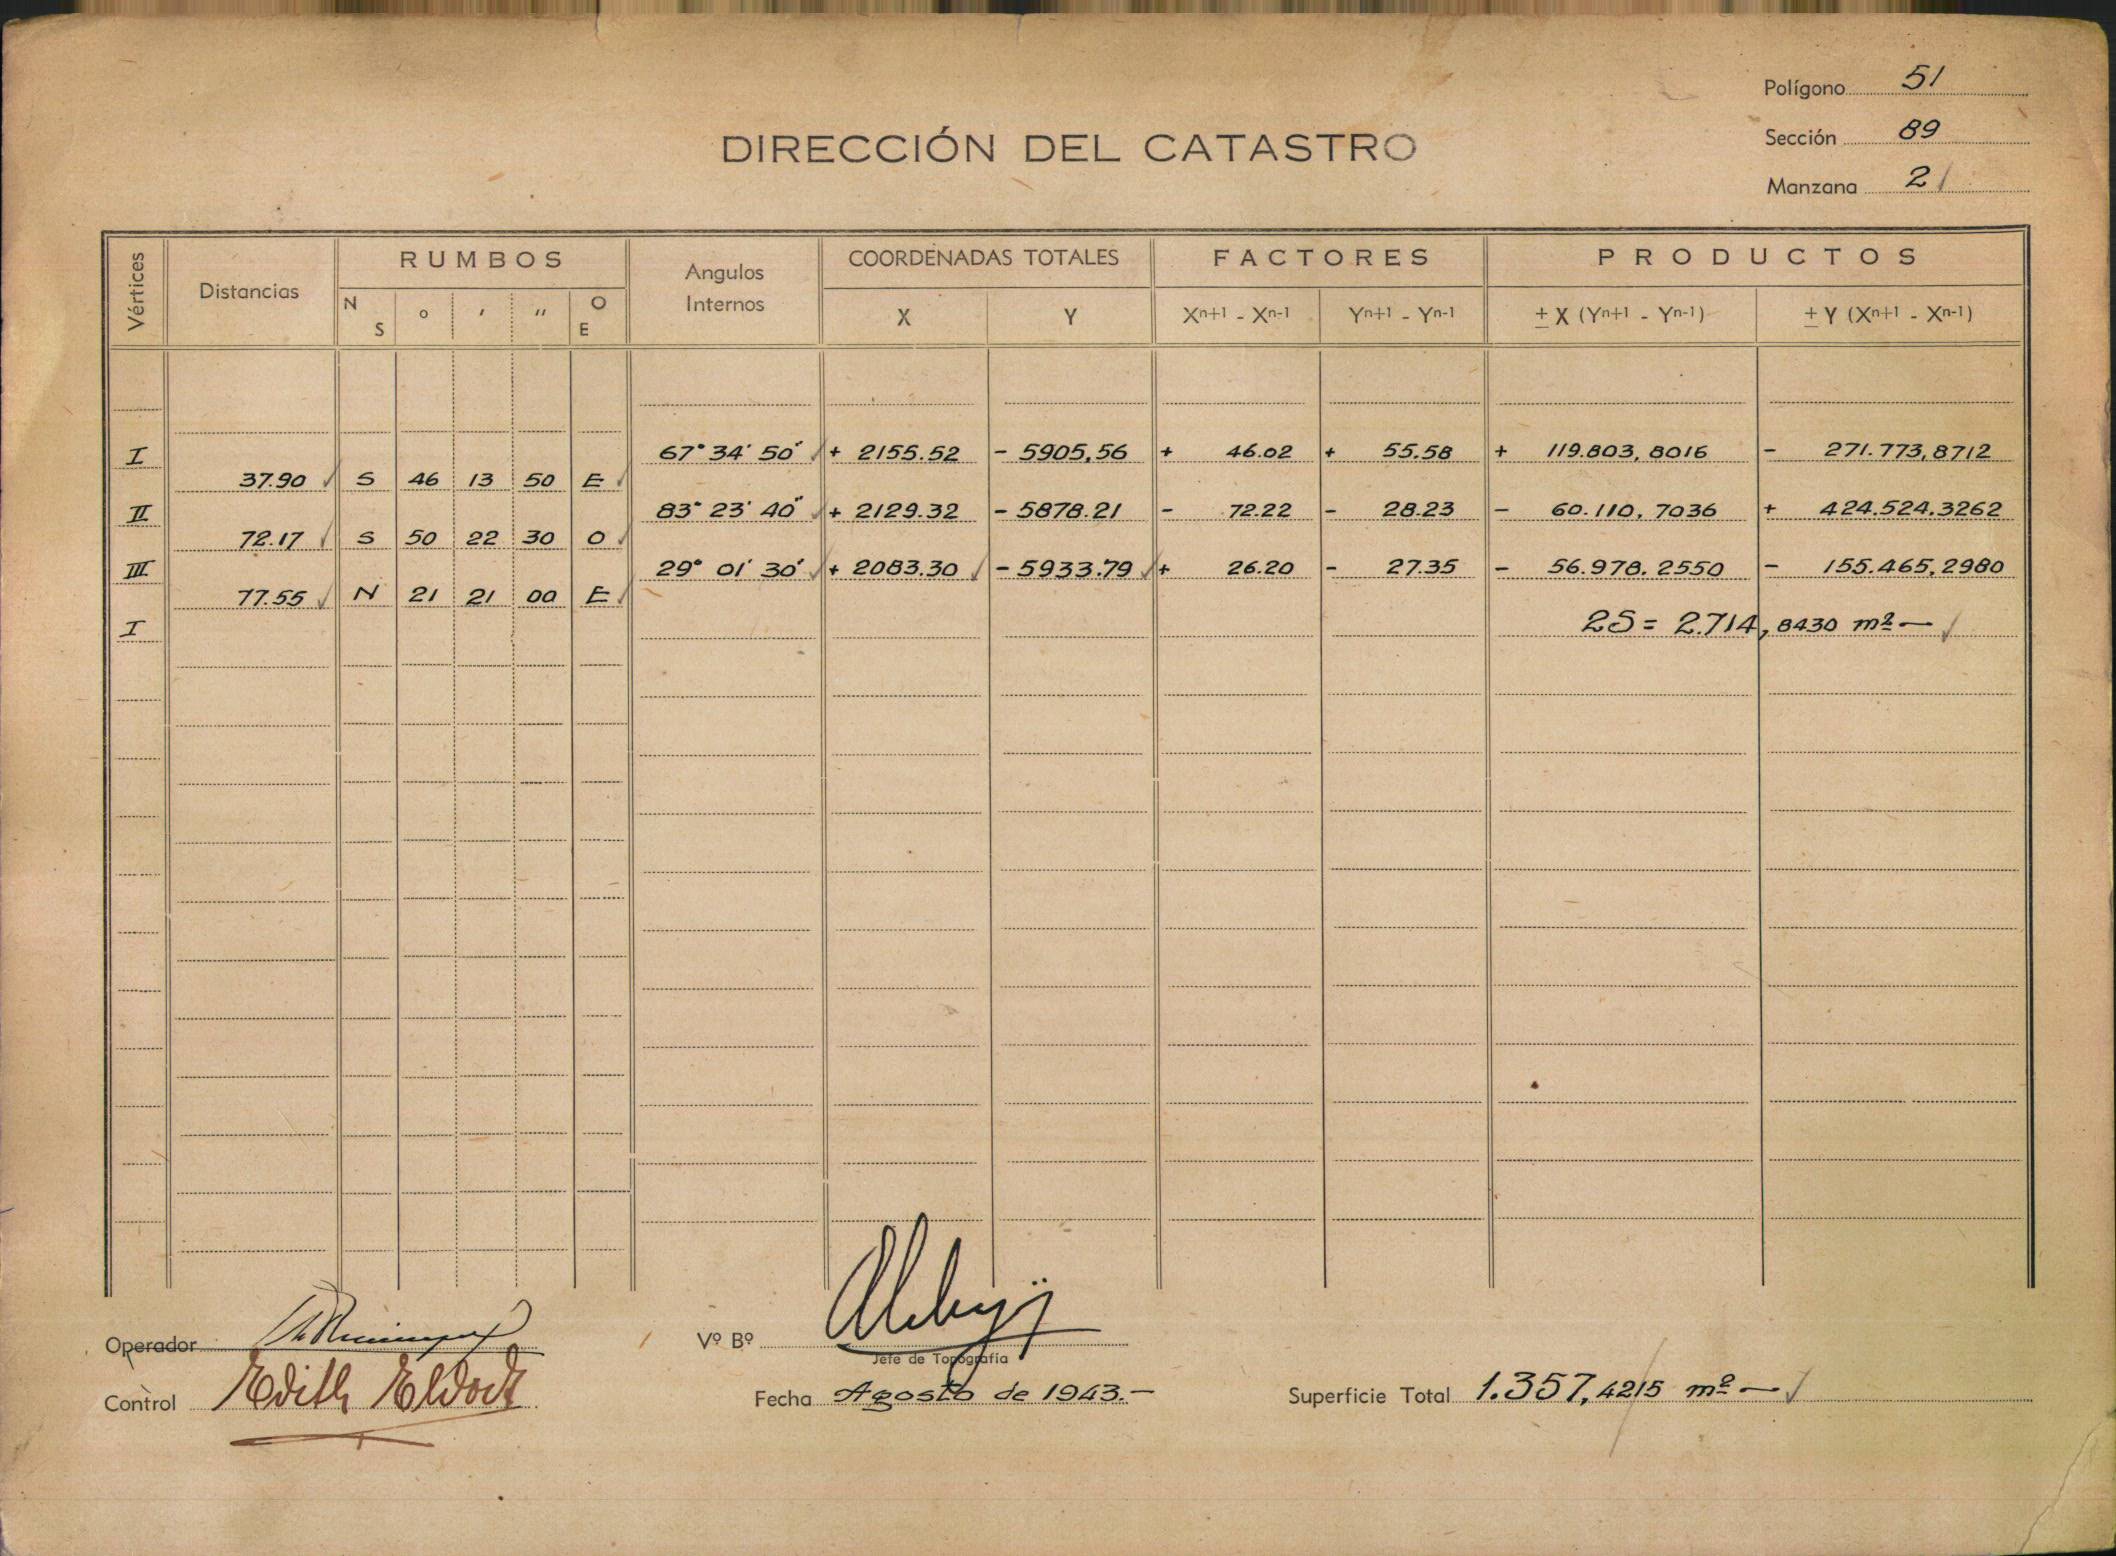 Polígono 51
DIRECCIÓN DEL CATASTRO
Sección 89
Manzana 2
Vértices Distancias RUMBOS Angulos Internos COORDENADAS TOTALES FACTORES PRODUCTOS
N S ° ′ ″ O E X Y Xⁿ⁺¹ - Xⁿ⁻¹ Yⁿ⁺¹ - Yⁿ⁻¹ ± X (Yⁿ⁺¹ - Yⁿ⁻¹) ± Y (Xⁿ⁺¹ - Xⁿ⁻¹)
I 67° 34' 50" + 2155.52 - 5905,56 + 46.02 + 55.58 + 119.803,8016 - 271.773,8712
37.90 S 46 13 50 E
II 83° 23' 40" + 2129.32 - 5878.21 - 72.22 - 28.23 - 60.110,7036 + 424.524,3262
72.17 S 50 22 30 O
III 29° 01' 30" + 2083.30 - 5933.79 + 26.20 - 27.35 - 56.978.2550 - 155.465,2980
77.55 N 21 21 00 E
I 2S = 2.714,8430 m² —
Operador
Vº Bº
Jefe de Topografía
Control Edith
Fecha Agosto de 1943.-
Superficie Total 1.357,4215 m² —